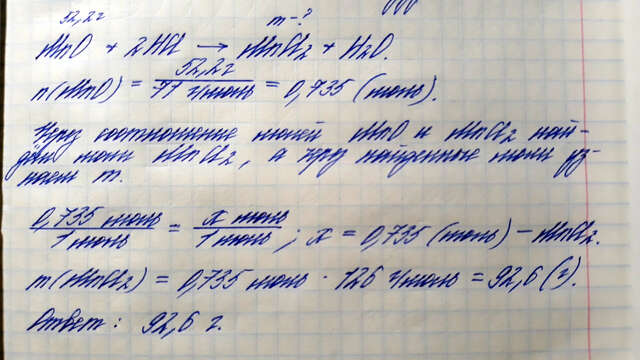 52,2г m-?
MnO + 2HCl → MnCl2 + H2O.
n(MnO) = 52,2г / 71 г/моль = 0,735 (моль).
Через соотношение молей MnO и MnCl2 най-
дём моли MnCl2, а через найденные моли уз-
наем m.
0,735 моль / 1 моль = x моль / 1 моль ; x = 0,735 (моль) - MnCl2.
m(MnCl2) = 0,735 моль · 126 г/моль = 92,6 (г).
Ответ: 92,6 г.